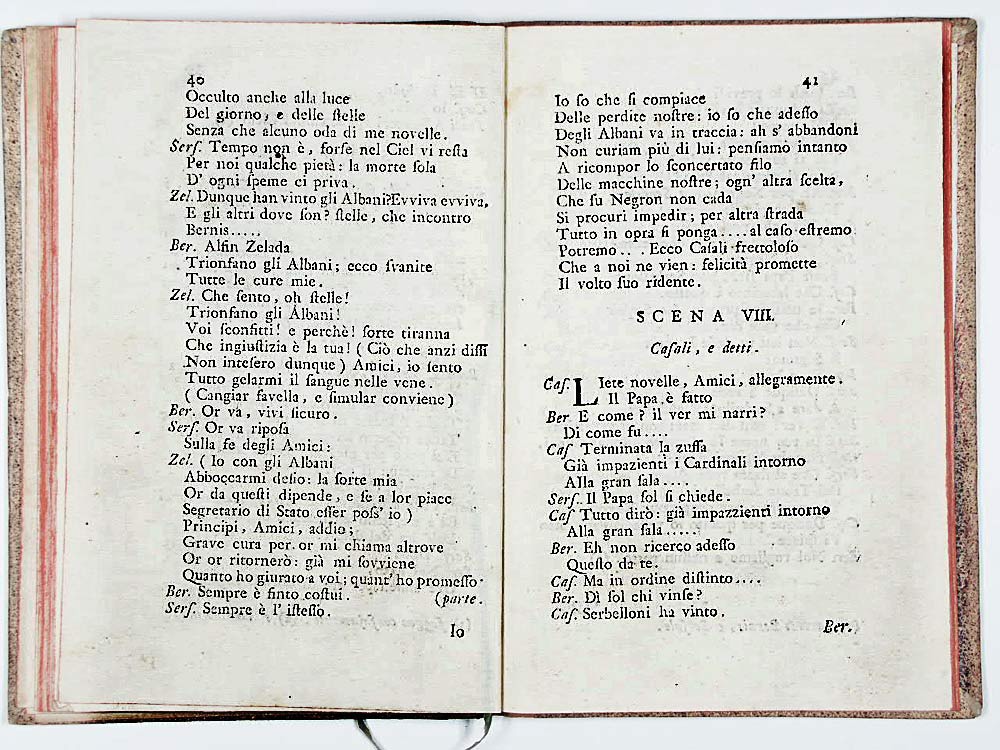 40
Occulto anche alla luce
Del giorno, e delle ſtelle
Senza che alcuno oda di me novelle.
Serſ. Tempo non è, forſe nel Ciel vi reſta
Per noi qualche pietà: la morte ſola
D' ogni ſpeme ci priva.
Zel. Dunque han vinto gli Albani? Evviva evviva,
E gli altri dove ſon? ſtelle, che incontro
Bernis.....
Ber. Alfin Zelada
Trionfano gli Albani; ecco ſvanite
Tutte le cure mie.
Zel. Che ſento, oh ſtelle!
Trionfano gli Albani!
Voi ſconfitti! e perchè! ſorte tiranna
Che ingiuſtizia è la tua! (Ciò che anzi diſſi
Non inteſero dunque) Amici, io ſento
Tutto gelarmi il ſangue nelle vene.
(Cangiar favella, e ſimular conviene)
Ber. Or và, vivi ſicuro.
Serſ. Or va ripoſa
Sulla fe degli Amici:
Zel. (Io con gli Albani
Abboccarmi deſio: la ſorte mia
Or da queſti dipende, e ſe a lor piace
Segretario di Stato eſſer poſſ' io)
Principi, Amici, addio;
Grave cura per or mi chiama altrove
Or or ritornerò: già mi ſovviene
Quanto ho giurato a voi; quant' ho promeſſo.
Ber. Sempre è finto coſtui. (parte.
Serſ. Sempre è l' iſteſſo.
Io
41
Io ſo che ſi compiace
Delle perdite noſtre: io ſo che adeſſo
Degli Albani va in traccia: ah s' abbandoni
Non curiam più di lui: penſiamo intanto
A ricompor lo ſconcertato filo
Delle macchine noſtre; ogn' altra ſcelta,
Che ſu Negron non cada
Si procuri impedir; per altra ſtrada
Tutto in opra ſi ponga.... al caſo eſtremo
Potremo... Ecco Caſali frettoloſo
Che a noi ne vien: felicità promette
Il volto ſuo ridente.
SCENA VIII.
Caſali, e detti.
Caſ. Liete novelle, Amici, allegramente.
Il Papa è fatto
Ber. E come? il ver mi narri?
Di come fu....
Caſ Terminata la zuffa
Già impazienti i Cardinali intorno
Alla gran ſala....
Serſ. Il Papa ſol ſi chiede.
Caſ Tutto dirò: già impazzienti intorno
Alla gran ſala.....
Ber. Eh non ricerco adeſſo
Queſto da te.
Caſ. Ma in ordine diſtinto....
Ber. Dì ſol chi vinſe?
Caſ. Serbelloni ha vinto.
Ber.